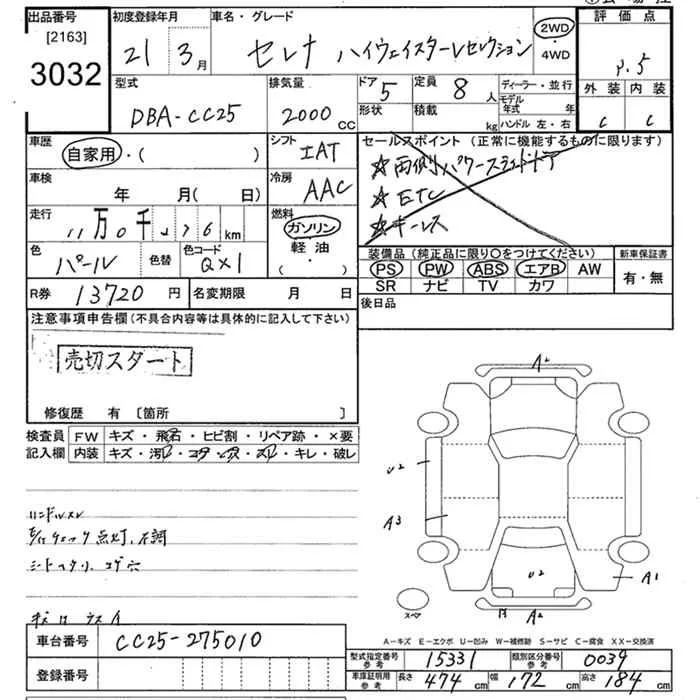 出品番号 [2163] 3032
初度登録年月 21 3月
車名・グレード セレナ ハイウェイスターVセレクション
2WD・4WD
評価点 P.5
外装 C 内装 C
型式 DBA-CC25
排気量 2000 CC
ドア 5 形状
定員 8人 積載 kg
ディーラー・並行
モデル年式 年
ハンドル 左・右
車歴 自家用・( )
シフト IAT
セールスポイント (正常に機能するものに限ります)
☆両側パワースライドドア
☆ETC
☆キーレス
車検 年 月( 日)
冷房 AAC
走行 11万0千276km
燃料 ガソリン 軽油 ( ・ )
色 パール 色替 色コード QX1
装備品 (純正品に限り○をつけてください) 新車保証書
PS PW ABS エアB AW 有・無
SR ナビ TV カワ
R券 13720円 名変期限 月 日
後日品
注意事項申告欄 (不具合内容等は具体的に記入して下さい)
売切スタート
修復歴 有 [箇所 ]
検査員記入欄
FW キズ・飛石・ヒビ割・リペア跡・×要
内装 キズ・汚レ・コゲ・ヘコ・スレ・キレ・破レ
A2
U2
A3
U2
A1
A2
スペア
ハンドルスレ
点灯、不調
シート コゲ穴
A-キズ E-エクボ U-凹み W-補修跡 S-サビ C-腐食 XX-交換済
車台番号 CC25-275010
登録番号
型式指定番号 参考 15331 類別区分番号 参考 0039
車庫証明用 参考 長さ 474cm 幅 172cm 高さ 184cm